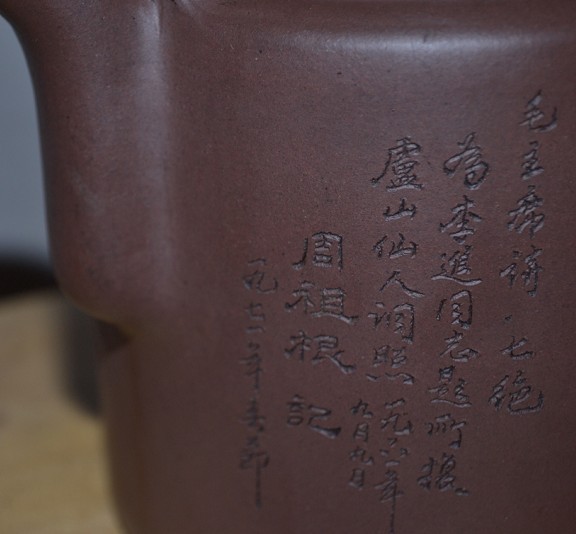 毛主席詩·七绝
為李進同志题所摄
盧山仙人洞照一九六一年
九月九日
周祖根記
一九七一年春节